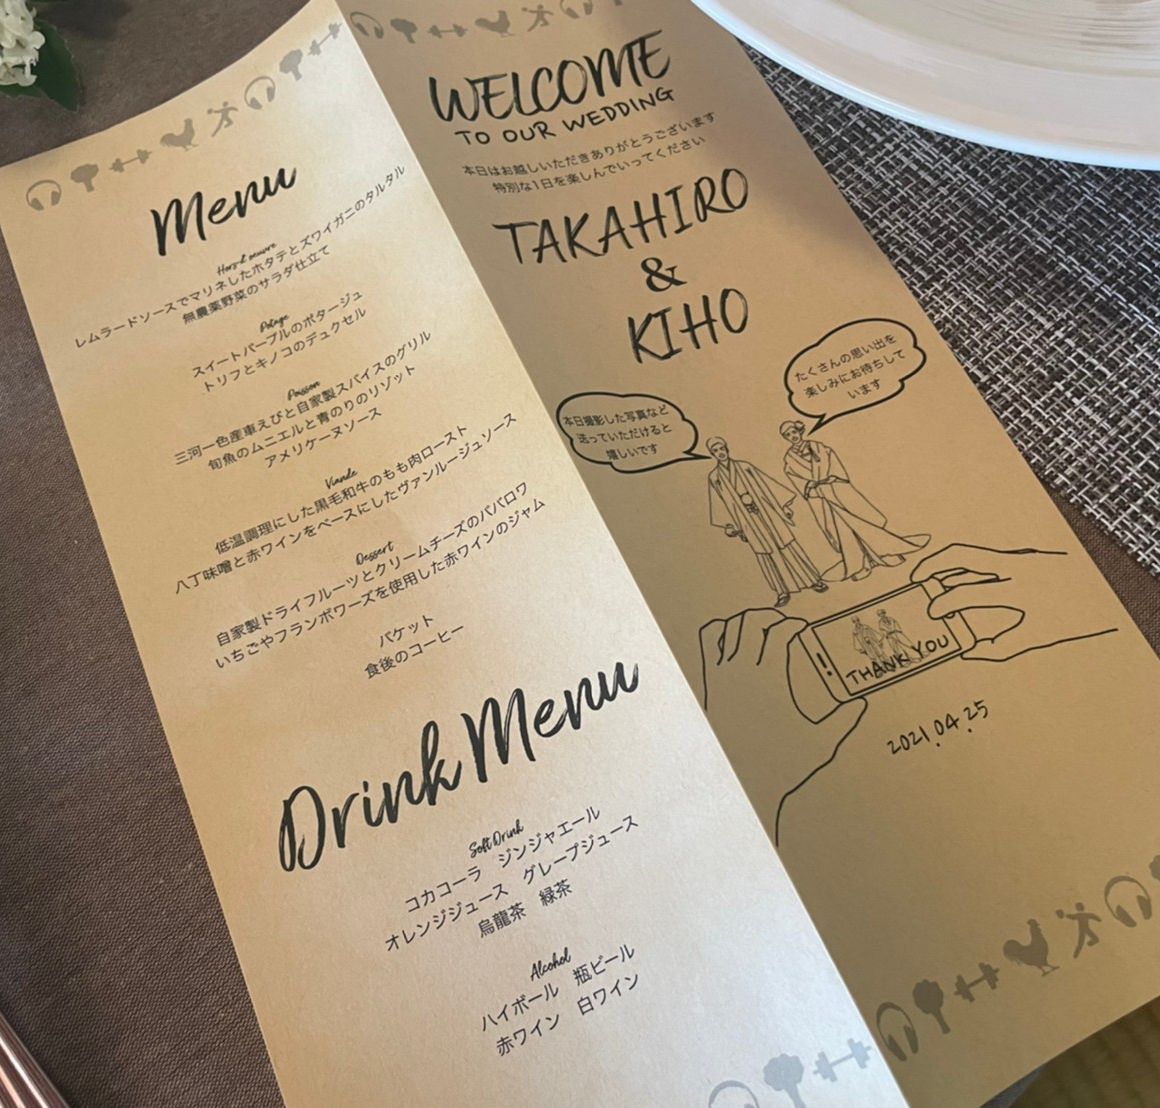 Menu
Hors-d'oeuvre
レムラードソースでマリネしたホタテとズワイガニのタルタル
無農薬野菜のサラダ仕立て
Potage
スイートパープルのポタージュ
トリフとキノコのデュクセル
Poisson
三河一色産車えびと自家製スパイスのグリル
旬魚のムニエルと青のりのリゾット
アメリケーヌソース
Viande
低温調理にした黒毛和牛のもも肉ロースト
八丁味噌と赤ワインをベースにしたヴァンルージュソース
Dessert
自家製ドライフルーツとクリームチーズのババロワ
いちごやフランボワーズを使用した赤ワインのジャム
バケット
食後のコーヒー
Drink Menu
Soft Drink
コカコーラ ジンジャエール
オレンジジュース グレープジュース
烏龍茶 緑茶
Alcohol
ハイボール 瓶ビール
赤ワイン 白ワイン
WELCOME
TO OUR WEDDING
本日はお越しいただきありがとうございます
特別な1日を楽しんでいってください
TAKAHIRO
&
KIHO
たくさんの思い出を
楽しみにお待ちして
います
本日撮影した写真など
送っていただけると
嬉しいです
THANK YOU
2021.04.25